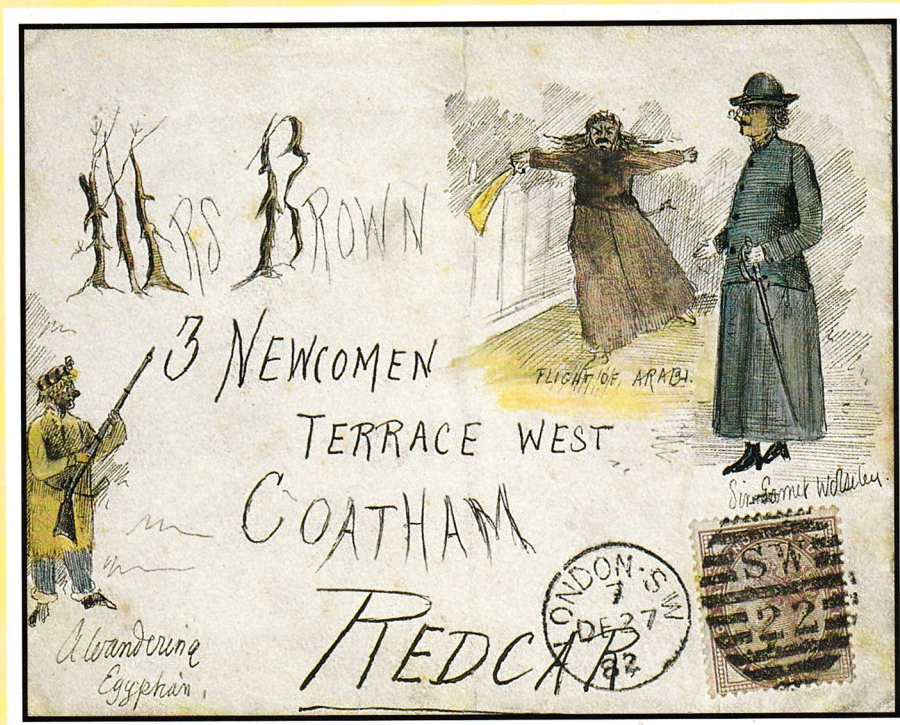 Mrs Brown
3 Newcomen
Terrace West
Coatham
Redcar
FLIGHT OF ARABI.
Sir Garnet Wolseley.
A wandering
Egyptian.
LONDON · S W
7
DE 27
82
S W
22